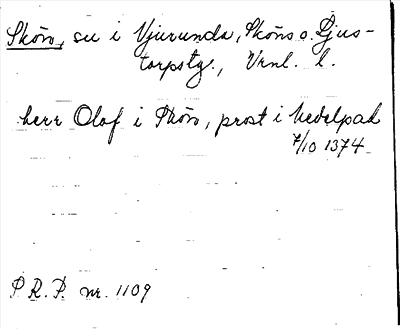 Skön, su i Njurunda, Sköns o. Ljus-
torpstg., Vrnl. l.
herr Olof i Skön, prost i Medelpad
7/10 1374
P. R. P. nr. 1109